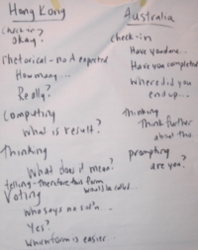 Hong Kong
check-in?
okay?
rhetorical - no A expected
How many...
Really?
Computing
What is result?
Thinking
What does it mean?
telling - therefore this form
would be called...
Voting
Who says no sol'n...
Yes?
Which form is easier...
Australia
check-in
Have you done...
Have you completed
Where did you
end up...
Thinking
Think further
about this.
prompting
are you?